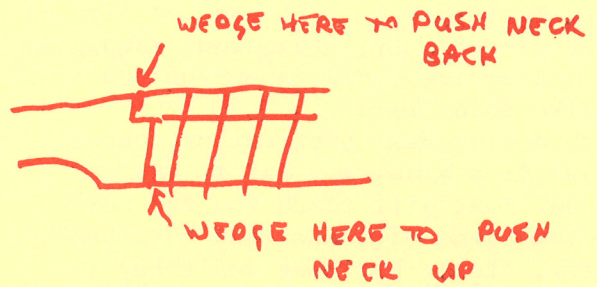 WEDGE HERE TO PUSH NECK
BACK
WEDGE HERE TO PUSH
NECK UP